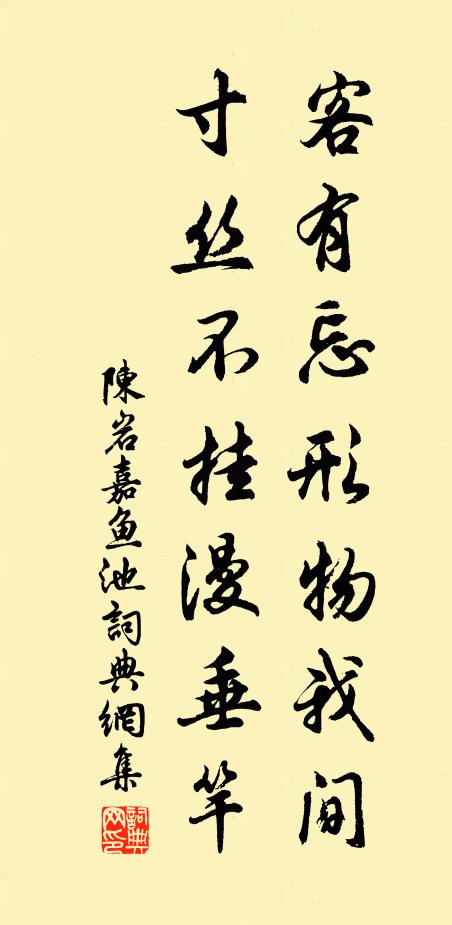 客有忘形物我间
寸丝不挂漫垂竿
陳岩嘉魚池詞典網集
詞典网印